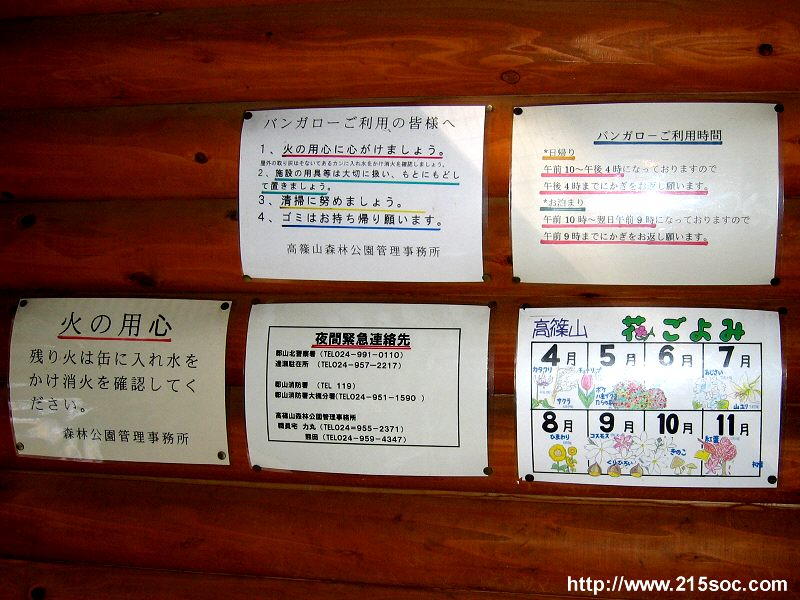 バンガローご利用の皆様へ
1、火の用心に心がけましょう。
屋外の取り灰はそないてあるカンに入れ水をかけ消火を確認しましょう。
2、施設の用具等は大切に扱い、もとにもどし
て置きましょう。
3、清掃に努めましょう。
4、ゴミはお持ち帰り願います。
高篠山森林公園管理事務所
バンガローご利用時間
*日帰り
午前10〜午後4時になっておりますので
午後4時までにかぎをお返し願います。
*お泊まり
午前10時〜翌日午前9時になっておりますので
午前9時までにかぎをお返し願います。
火の用心
残り火は缶に入れ水を
かけ消火を確認してく
ださい。
森林公園管理事務所
夜間緊急連絡先
郡山北警察署 (TEL024-991-0110)
逢瀬駐在所 (TEL024-957-2217)
郡山消防署 (TEL 119)
郡山消防署大槻分署(TEL024-951-1590 )
高篠山森林公園管理事務所
職員宅 力丸 (TEL024-955-2371)
熊田 (TEL024-959-4347)
高篠山 花ごよみ
4月 5月 6月 7月
カタクリ チューリップ あじさい
サクラ ボケ 山ユリ
8月 9月 10月 11月
ひまわり コスモス きのこ 紅葉
くりひろい
http://www.215soc.com/